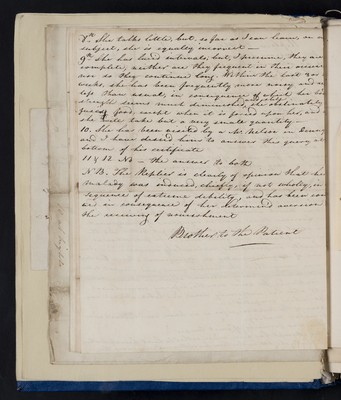 8th She talks little, but so far as I can learn, on a
subject, she is equally incorrect —
9th She has lucid intervals, but, I presume, they are
complete, neither are they frequent in their occurr
nor do they continue long. Within the last
weeks, she has been frequently more noisy and
less than usual, in consequence of which her
strength seems much diminished, she obstinately
food, except when it is forced upon her, and
she will take but a very small quantity —
10. She has been visited by a Mr. Nelson in
and I have desired him to answer this query at
bottom of his certificate
11 & 12 No — the answer to both
N.B. The Replier is clearly of opinion that her
malady was induced, chiefly, if not wholly, in
sequence of extreme debility, and has been
in consequence of her determined aversion
the receiving of nourishment
Brother to the Patient